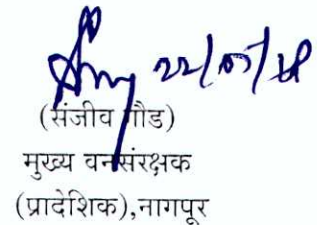 22/05/18
(संजीव गौड)
मुख्य वनसंरक्षक
(प्रादेशिक),नागपूर